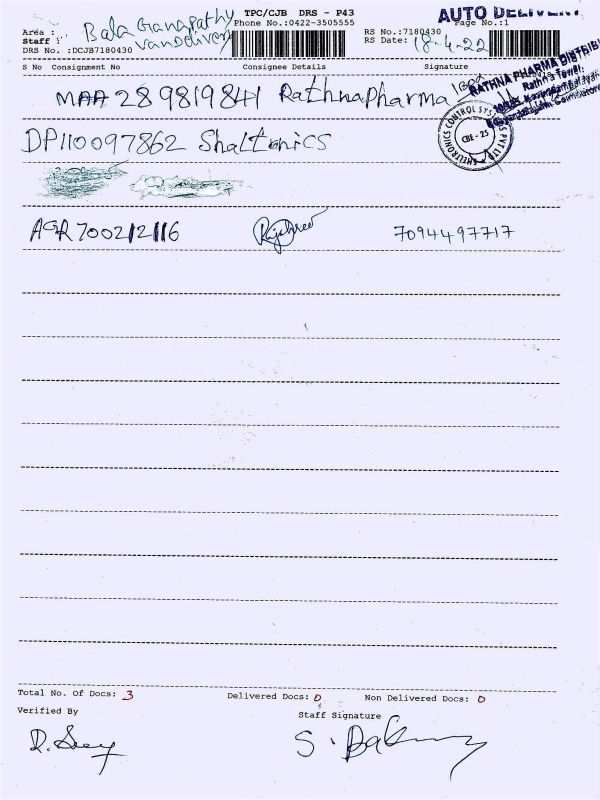 TPC/CJB DRS - P43
AUTO DELIVERY
Area : Bala Ganapathy
Phone No.:0422-3505555
RS No.:7180430
Page No.:1
Staff : VanDelivery
RS Date: 18-4-22
DRS No. :DCJB7180430
S No Consignment No Consignee Details Signature
RATHNA PHARMA DISTRIB
Rathna Tower,
MAA 289819841 Rathna Pharma
DP110097862 Shaltonics
SHELTRONICS CONTROL SYSTEMS PVT LTD
CBE - 25
AGR 700212116 Rajshree 7094497717
Total No. Of Docs: 3 Delivered Docs: 0 Non Delivered Docs: 0
Verified By Staff Signature